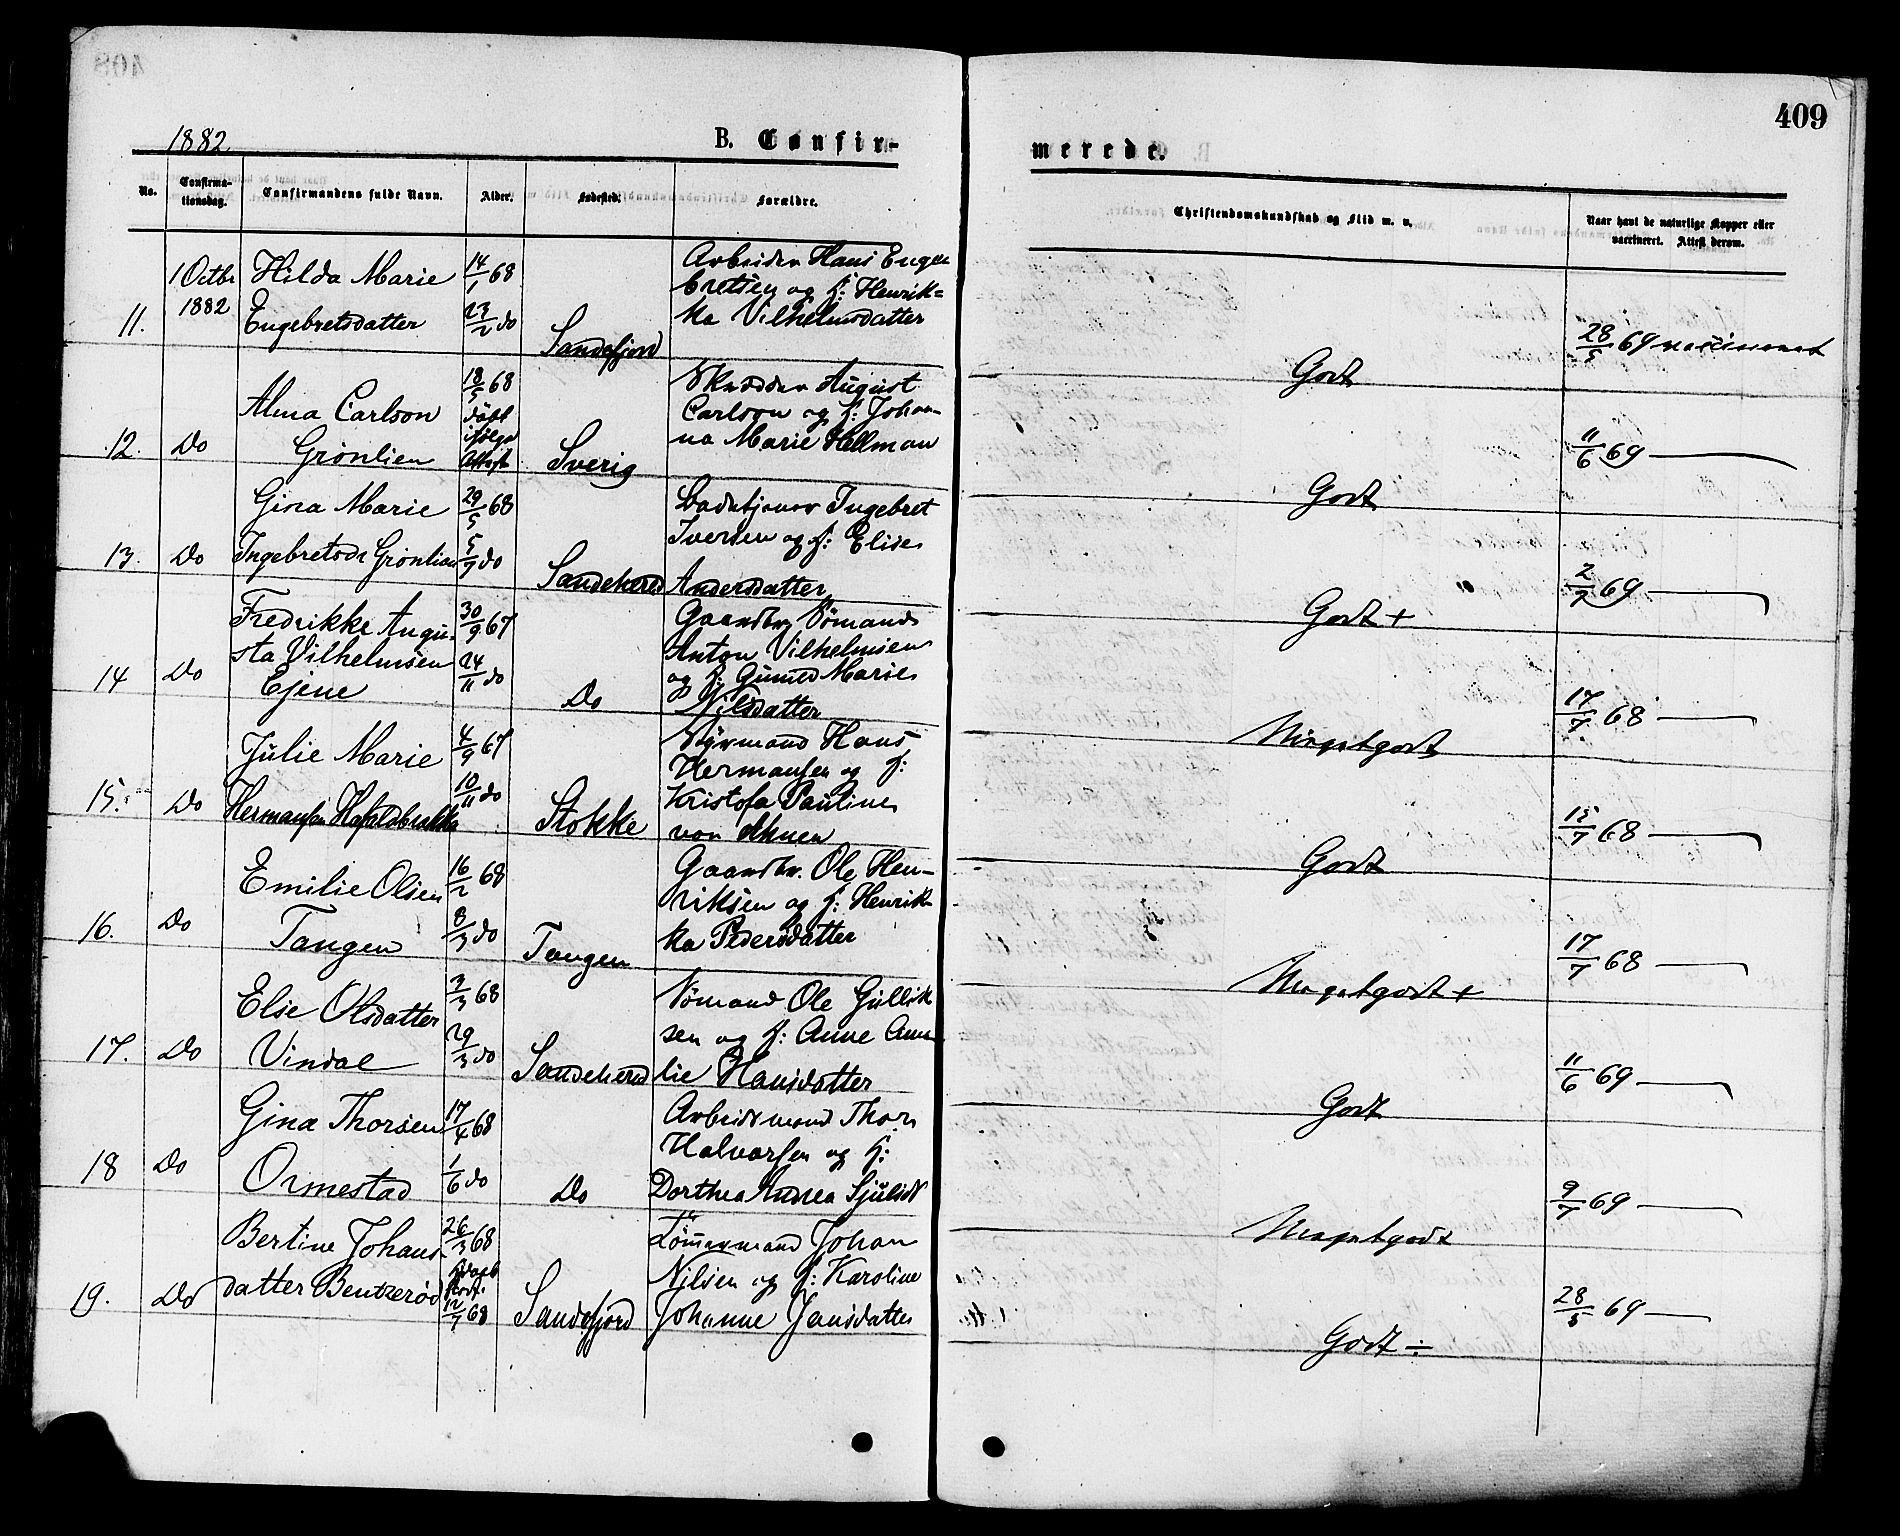 409
1882
B. Confir-
merede.
No.
Confirma-
tionsdag.
Confirmandens fulde Navn.
Alder.
Fødested.
Forældre.
Christendomskundskab og Flid m. v.
Naar havt de naturlige Kopper eller
vaccineret. Attest derom.
11.
1 Octbr
1882
Hilda Marie
Engebretsdatter
14/1 68
23/2 do
Sandefjord
Arbeider Hans Enge
bretsen og h: Henrik=
ka Vilhelmsdatter
Godt
28/5 69 vaccineret
12.
Do
Alma Carlson
Grønlien
18/5 68
døbt
ifølge
Attest
Sverig
Skrædder August
Carlson og h: Johan-
na Marie Hellman
Godt
11/6 69
13.
Do
Gina Marie
Ingebretsdr Grønlien
29/5 68
5/7 do
Sandeherred
Ingebret
Iversen og h: Elise
Andersdatter
Godt +
2/7 69
14
Do
Fredrikke Augu-
sta Vilhelmsen
Ejene
30/9 67
24/11 do
Do
Gaardbr Sømand
Anton Vilhelmsen
og h: Gunild Marie
Nilsdatter
Megetgodt
17/7 68
15.
Do
Julie Marie
Hermansen
4/9 67
10/11 do
Stokke
Styrmand Hans
Hermansen og h:
Kristofa Pauline
von
Godt
15/7 68
16.
Do
Emilie Olsen
Tangen
16/2 68
8/3 do
Tangen
Gaardbr. Ole Hen-
riksen og h: Henrik-
ka Pedersdatter
Megetgodt +
17/7 68
17.
Do
Else Olsdatter
Vindal
3/3 68
29/3 do
Sandeherred
Sømand Ole Gullik
sen og h: Anne Ama
lie Hansdatter
Godt
11/6 69
18
Do
Gina Thorsen
Ormestad
17/4 68
1/6 do
Do
Arbeidsmand Thor
Halvorsen og h:
Dorthea Andrea
Megetgodt
9/7 69
19.
Do
Bertine Johans
datter Bentzerød
26/3 68
12/7 68
Sandefjord
Tømmermand Johan
Nilsen og h: Karoline
Johanne Jansdatter
Godt ÷
28/5 69